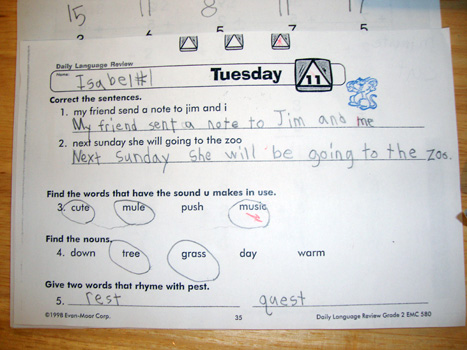 15 11 8 11 7
3 6 5 7 5
Daily Language Review
Name: Isabel #1
Tuesday 11
Correct the sentences.
1. my friend send a note to jim and i
My friend sent a note to Jim and me
2. next sunday she will going to the zoo
Next Sunday she will be going to the zoo.
Find the words that have the sound u makes in use.
3. cute mule push music
Find the nouns.
4. down tree grass day warm
Give two words that rhyme with pest.
5. rest quest
©1998 Evan-Moor Corp. 35 Daily Language Review Grade 2 EMC 580